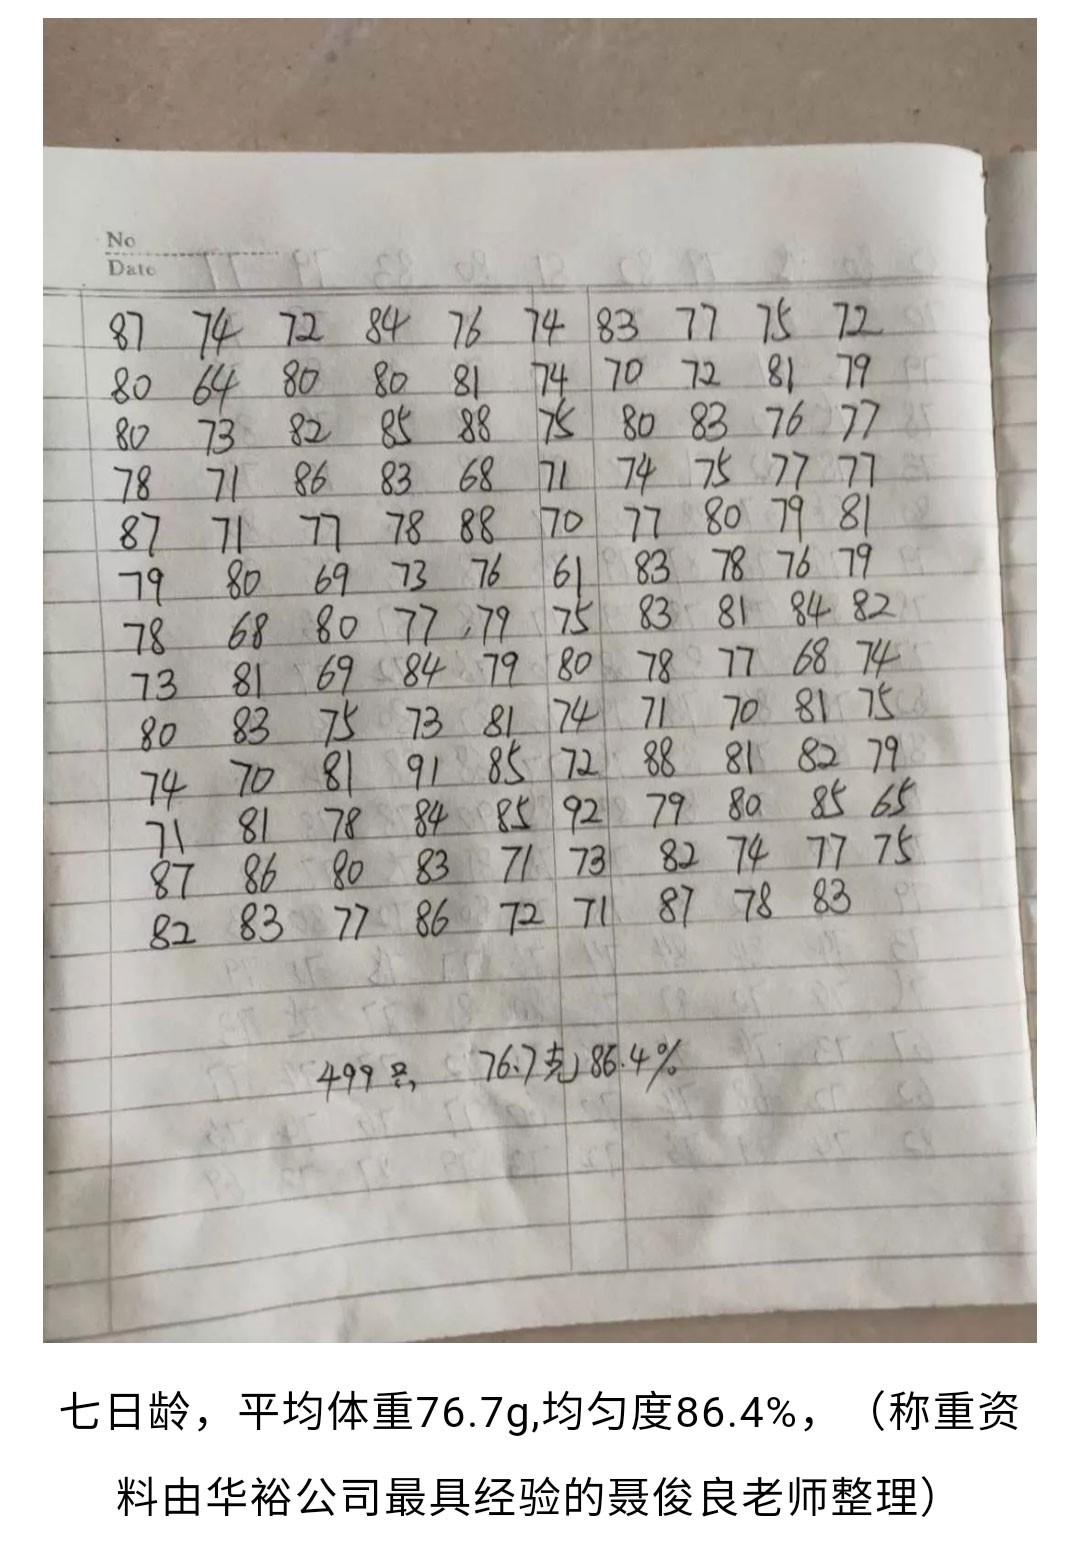 No
Date
87 74 72 84 76 74 83 77 75 72
80 64 80 80 81 74 70 72 81 79
80 73 82 85 88 75 80 83 76 77
78 71 86 83 68 71 74 75 77 77
87 71 77 78 88 70 77 80 79 81
79 80 69 73 76 61 83 78 76 79
78 68 80 77 79 75 83 81 84 82
73 81 69 84 79 80 78 77 68 74
80 83 75 73 81 74 71 70 81 75
74 70 81 91 85 72 88 81 82 79
71 81 78 84 85 92 79 80 85 65
87 86 80 83 71 73 82 74 77 75
82 83 77 86 72 71 87 78 83
499只, 76.7克 86.4%
七日龄，平均体重76.7g,均匀度86.4%，（称重资
料由华裕公司最具经验的聂俊良老师整理）